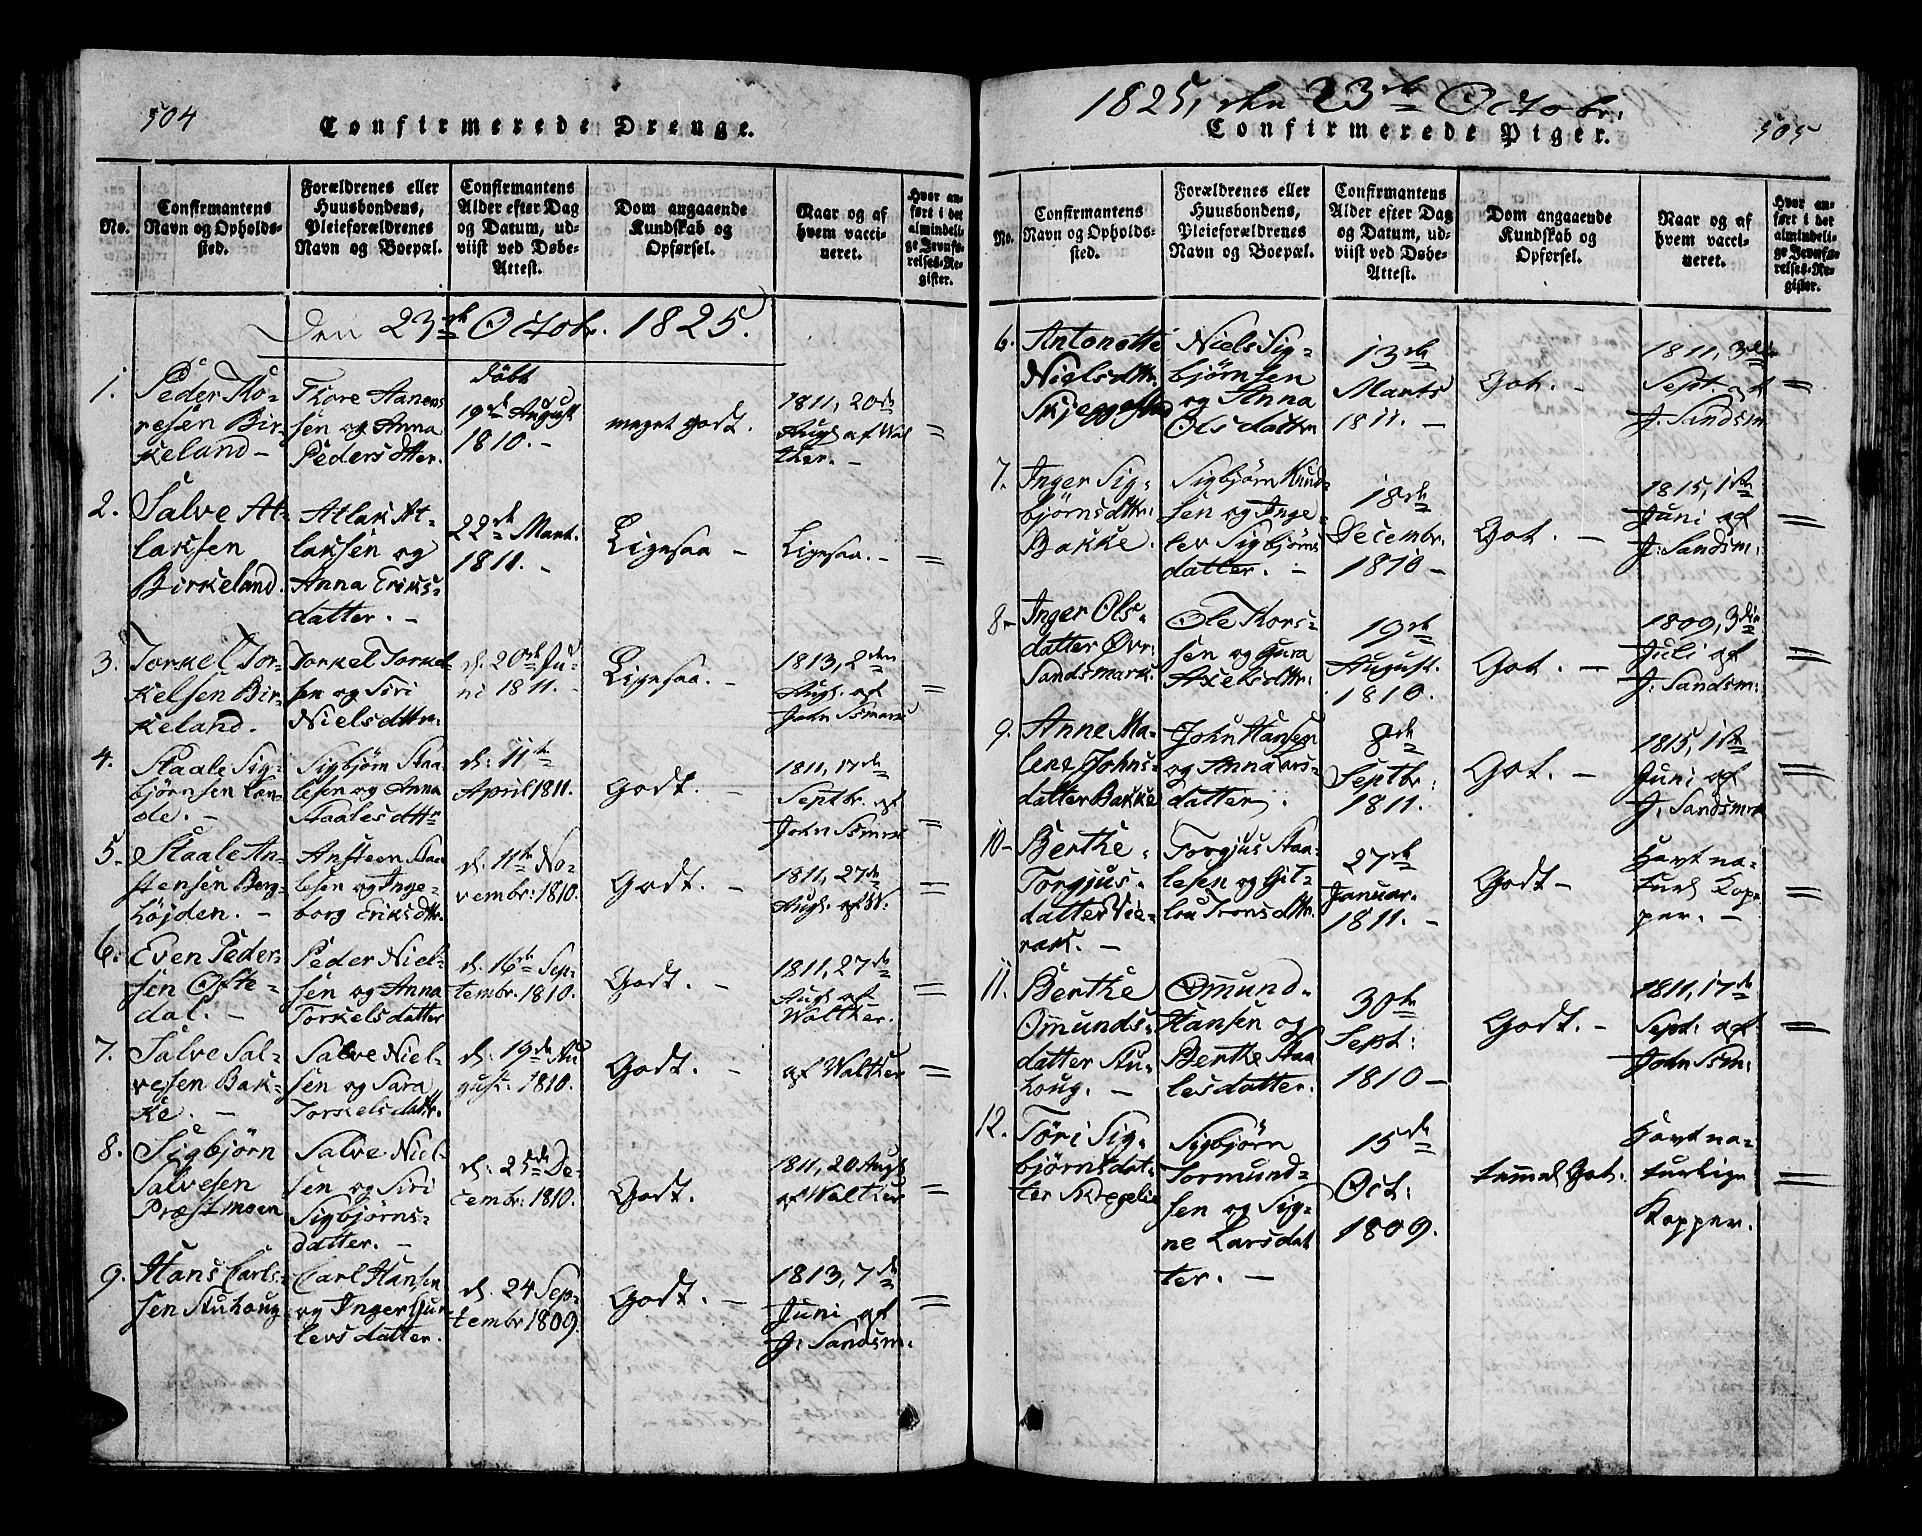 504
Confirmerede Drenge.
No.
Confirmantens
Navn og Opholds-
sted.
Forældrenes eller
Huusbondens,
Pleieforældrenes
Navn og Boepæl.
Confirmantens
Alder efter Dag
og Datum, ud-
viist ved Døbe-
Attest.
Dom angaaende
Kundskab og
Opførsel.
Naar og af
hvem vacci-
neret.
Hvor an-
ført i det
almindeli-
ge Jevnfø-
relses-Re-
gister.
Den 23de Octobr. 1825.
1.
Peder Tho-
resen Bir-
keland -
Thore Aanen
sen og Anna
Pedersdtter.
döbt
19de August
1810. -
meget godt.
1811, 20de
Augs. af Wal
ther. -
=
2.
Salve At-
laksen
Birkeland.
Atlak At-
laksen og
Anna Eriks-
datter. -
22de Mart.
1811. -
Ligesaa -
Ligesaa. -
=
3.
Torkel Tor-
kelsen Bir-
keland.
Torkel Torkel-
sen og Siri
Nielsdttr.
d. 20de Ju-
ni 1811. -
Ligesaa. -
1813, 2den
Augs. af
John Smark
=
4.
Staale Sig-
björnsen Lan-
de. -
Sigbjörn Staa-
lesen og Anna
Staalesdttr
d: 11te
April 1811.
Godt. -
1811, 17de
Septbr. af
John Smark
=
5.
Staale An-
stensen Berg-
höjden. -
Ansteen Staa-
lesen og Inge-
borg Eriksdttr.
d. 11te No-
vembr: 1810.
Godt. -
1811, 27de
Augs. af W.
=
6.
Even Peder-
sen Ofte-
dal. -
Peder Niel-
sen og Anna
Torkelsdatter
d. 16de Sep-
tembr. 1810.
Godt. -
1811, 27de
Augs. af
Walther.
=
7.
Salve Sal-
vesen Bak-
ke. -
Salve Niel-
sen og Sara
Torkelsdattr.
d: 19de Au
gust: 1810.
Godt. -
af Walther
=
8.
Sigbjörn
Salvesen
Præstmoen
Salve Niel-
sen og Siri
Sigbjörns-
datter. -
d: 25de De-
cembr: 1810.
Godt.
1811, 20 Augs
af Walther
=
9.
Hans Carls-
sen Stuhoug
Carl Hansen
og Inger Gun-
levsdatter.
d. 24 Sep-
tembr 1809.
Godt. -
1813, 7de
Juni af
J: Sandsm.
=
1825, den 23de Octobr:
Confirmerede Piger.
505
No.
Confirmantens
Navn og Opholds-
sted.
Forældrenes eller
Huusbondens,
Pleieforældrenes
Navn og Boepæl.
Confirmantens
Alder efter Dag
og Datum, ud-
viist ved Døbe-
Attest.
Dom angaaende
Kundskab og
Opførsel.
Naar og af
hvem vacci-
neret.
Hvor an-
ført i det
almindeli-
ge Jevnfø-
relses-Re-
gister.
6.
Antonette
Nielsdttr.
Skjeggestad
Niels Sig-
björnsen
og Anna
Olsdatter
13de
Marts
1811. -
Got. -
1811, 3die
Sept. af
J. Sandsm
=
7.
Inger Sig-
björnsdttr.
Bakke.
Sigbjörn Knud-
sen og Inge-
lev Sigbjörns
datter. -
18de
Decembr.
1810 -
Got. -
1815, 1ste
Juni af
J: Sandsm:
=
8-
Inger Ols-
datter Övr:
Sandsmark.
Ole Thors-
sen og Gura
Axelsdttr.
19de
August.
1810.
Got. -
1809, 3die
Juli af
J: Sandsm:
=
9.
Anne Ma-
lene Johns-
datter Bakke
John Hansen
og Anna Lars-
datter.
8de
Septbr:
1811.
Got. -
1815, 1ste
Juni af
J. Sandsmrk
=
10-
Berthe
Torgjus-
datter Vie-
rak. -
Torgjus Staa-
lesen og Git-
lou Tronsdttr.
27de
Januar.
1811. -
Godt -
Havt na-
turl. Kop-
per. -
=
11.
Berthe
Omunds-
datter Stu-
houg. -
Omund
Hansen og
Berthe Staa
lesdatter.
30te
Sept:
1810 -
Godt. -
1811, 17de
Sept: af
John Ssm:
=
12.
Töri Sig-
björnsdat-
ter
Sigbjörn
Tormund-
sen og Sig-
ne Larsdat
ter. -
15de
Oct:
1809.
temmel. Got.
Havt na-
turlige
Kopper.
=